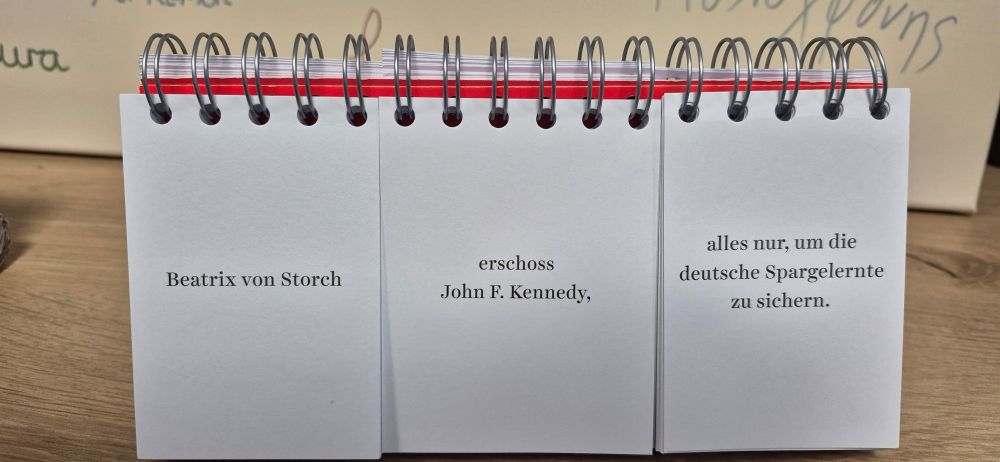 Beatrix von Storch
erschoss
John F. Kennedy,
alles nur, um die
deutsche Spargelernte
zu sichern.